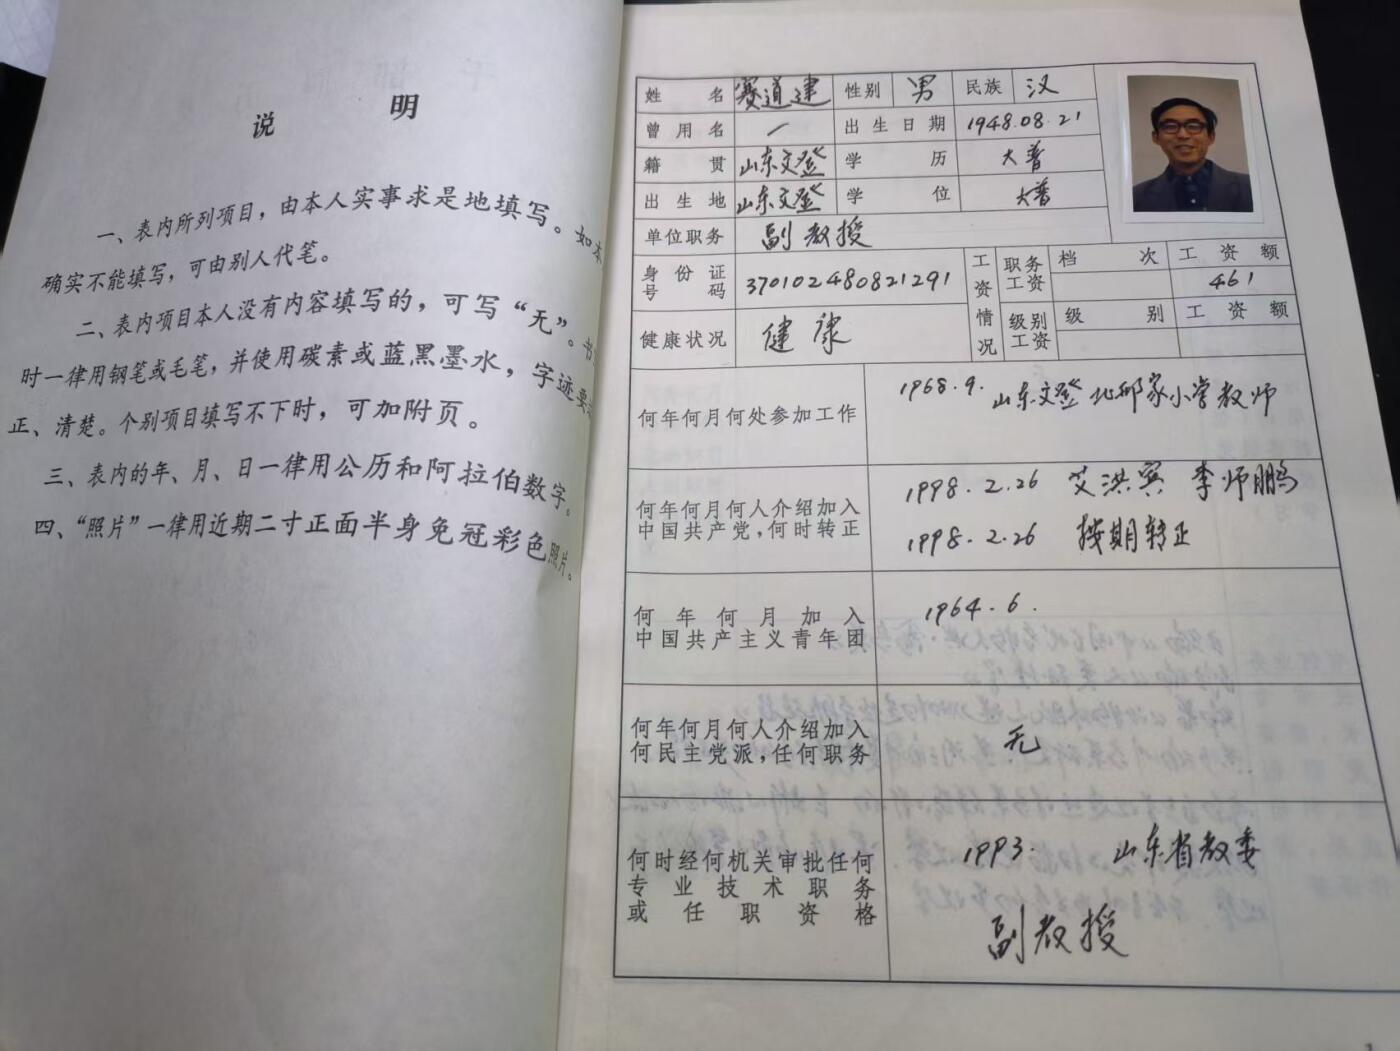 说 明
一、表内所列项目，由本人实事求是地填写。如本
确实不能填写，可由别人代笔。
二、表内项目本人没有内容填写的，可写“无”。书
时一律用钢笔或毛笔，并使用碳素或蓝黑墨水，字迹要
正、清楚。个别项目填写不下时，可加附页。
三、表内的年、月、日一律用公历和阿拉伯数字。
四、“照片”一律用近期二寸正面半身免冠彩色照片。
姓名 赛道建 性别 男 民族 汉
曾用名 / 出生日期 1948.08.21
籍贯 山东文登 学历 大普
出生地 山东文登 学位 大普
单位职务 副教授
身份证号码 370102480821291
工资情况 职务工资 档次 工资额 461
健康状况 健康
级别工资 级别 工资额
何年何月何处参加工作 1968.9. 山东文登北邢家小学教师
何年何月何人介绍加入 1998.2.26 艾洪宾 李师鹏
中国共产党，何时转正 1998.2.26 按期转正
何年何月加入 1964.6.
中国共产主义青年团
何年何月何人介绍加入
何民主党派，任何职务 无
何时经何机关审批任何 1993. 山东省教委
专业技术职务
或任职资格 副教授